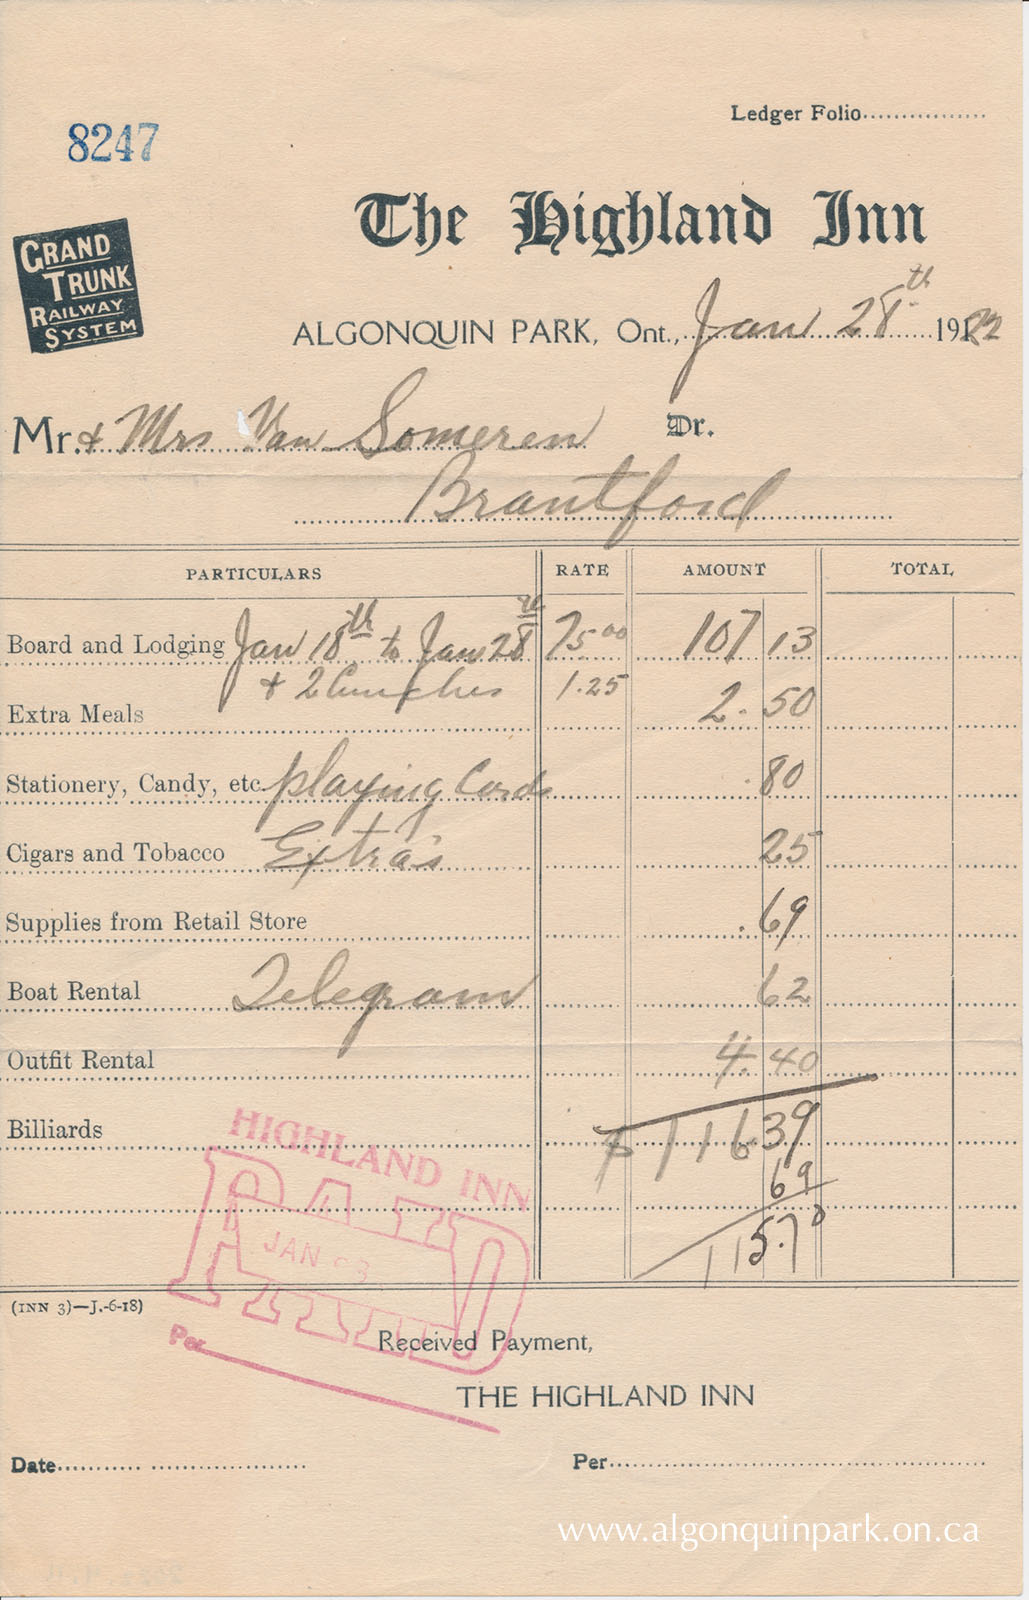 Ledger Folio
8247
The Highland Inn
GRAND TRUNK RAILWAY SYSTEM
ALGONQUIN PARK, Ont., Jan 28th 1922
Mr. & Mrs Van Someren Dr.
Brantford
PARTICULARS RATE AMOUNT TOTAL
Board and Lodging Jan 18th to Jan 28th 75.00 107 13
& 2 lunches 1.25
Extra Meals 2.50
Stationery, Candy, etc. playing Cards .80
Cigars and Tobacco Extra's 25
Supplies from Retail Store .69
Boat Rental Telegram 62
Outfit Rental 4.40
Billiards $ 116 39
69
115.70
HIGHLAND INN
PAID
JAN
Per
(INN 3)—J.-6-18)
Received Payment,
THE HIGHLAND INN
Date Per
www.algonquinpark.on.ca